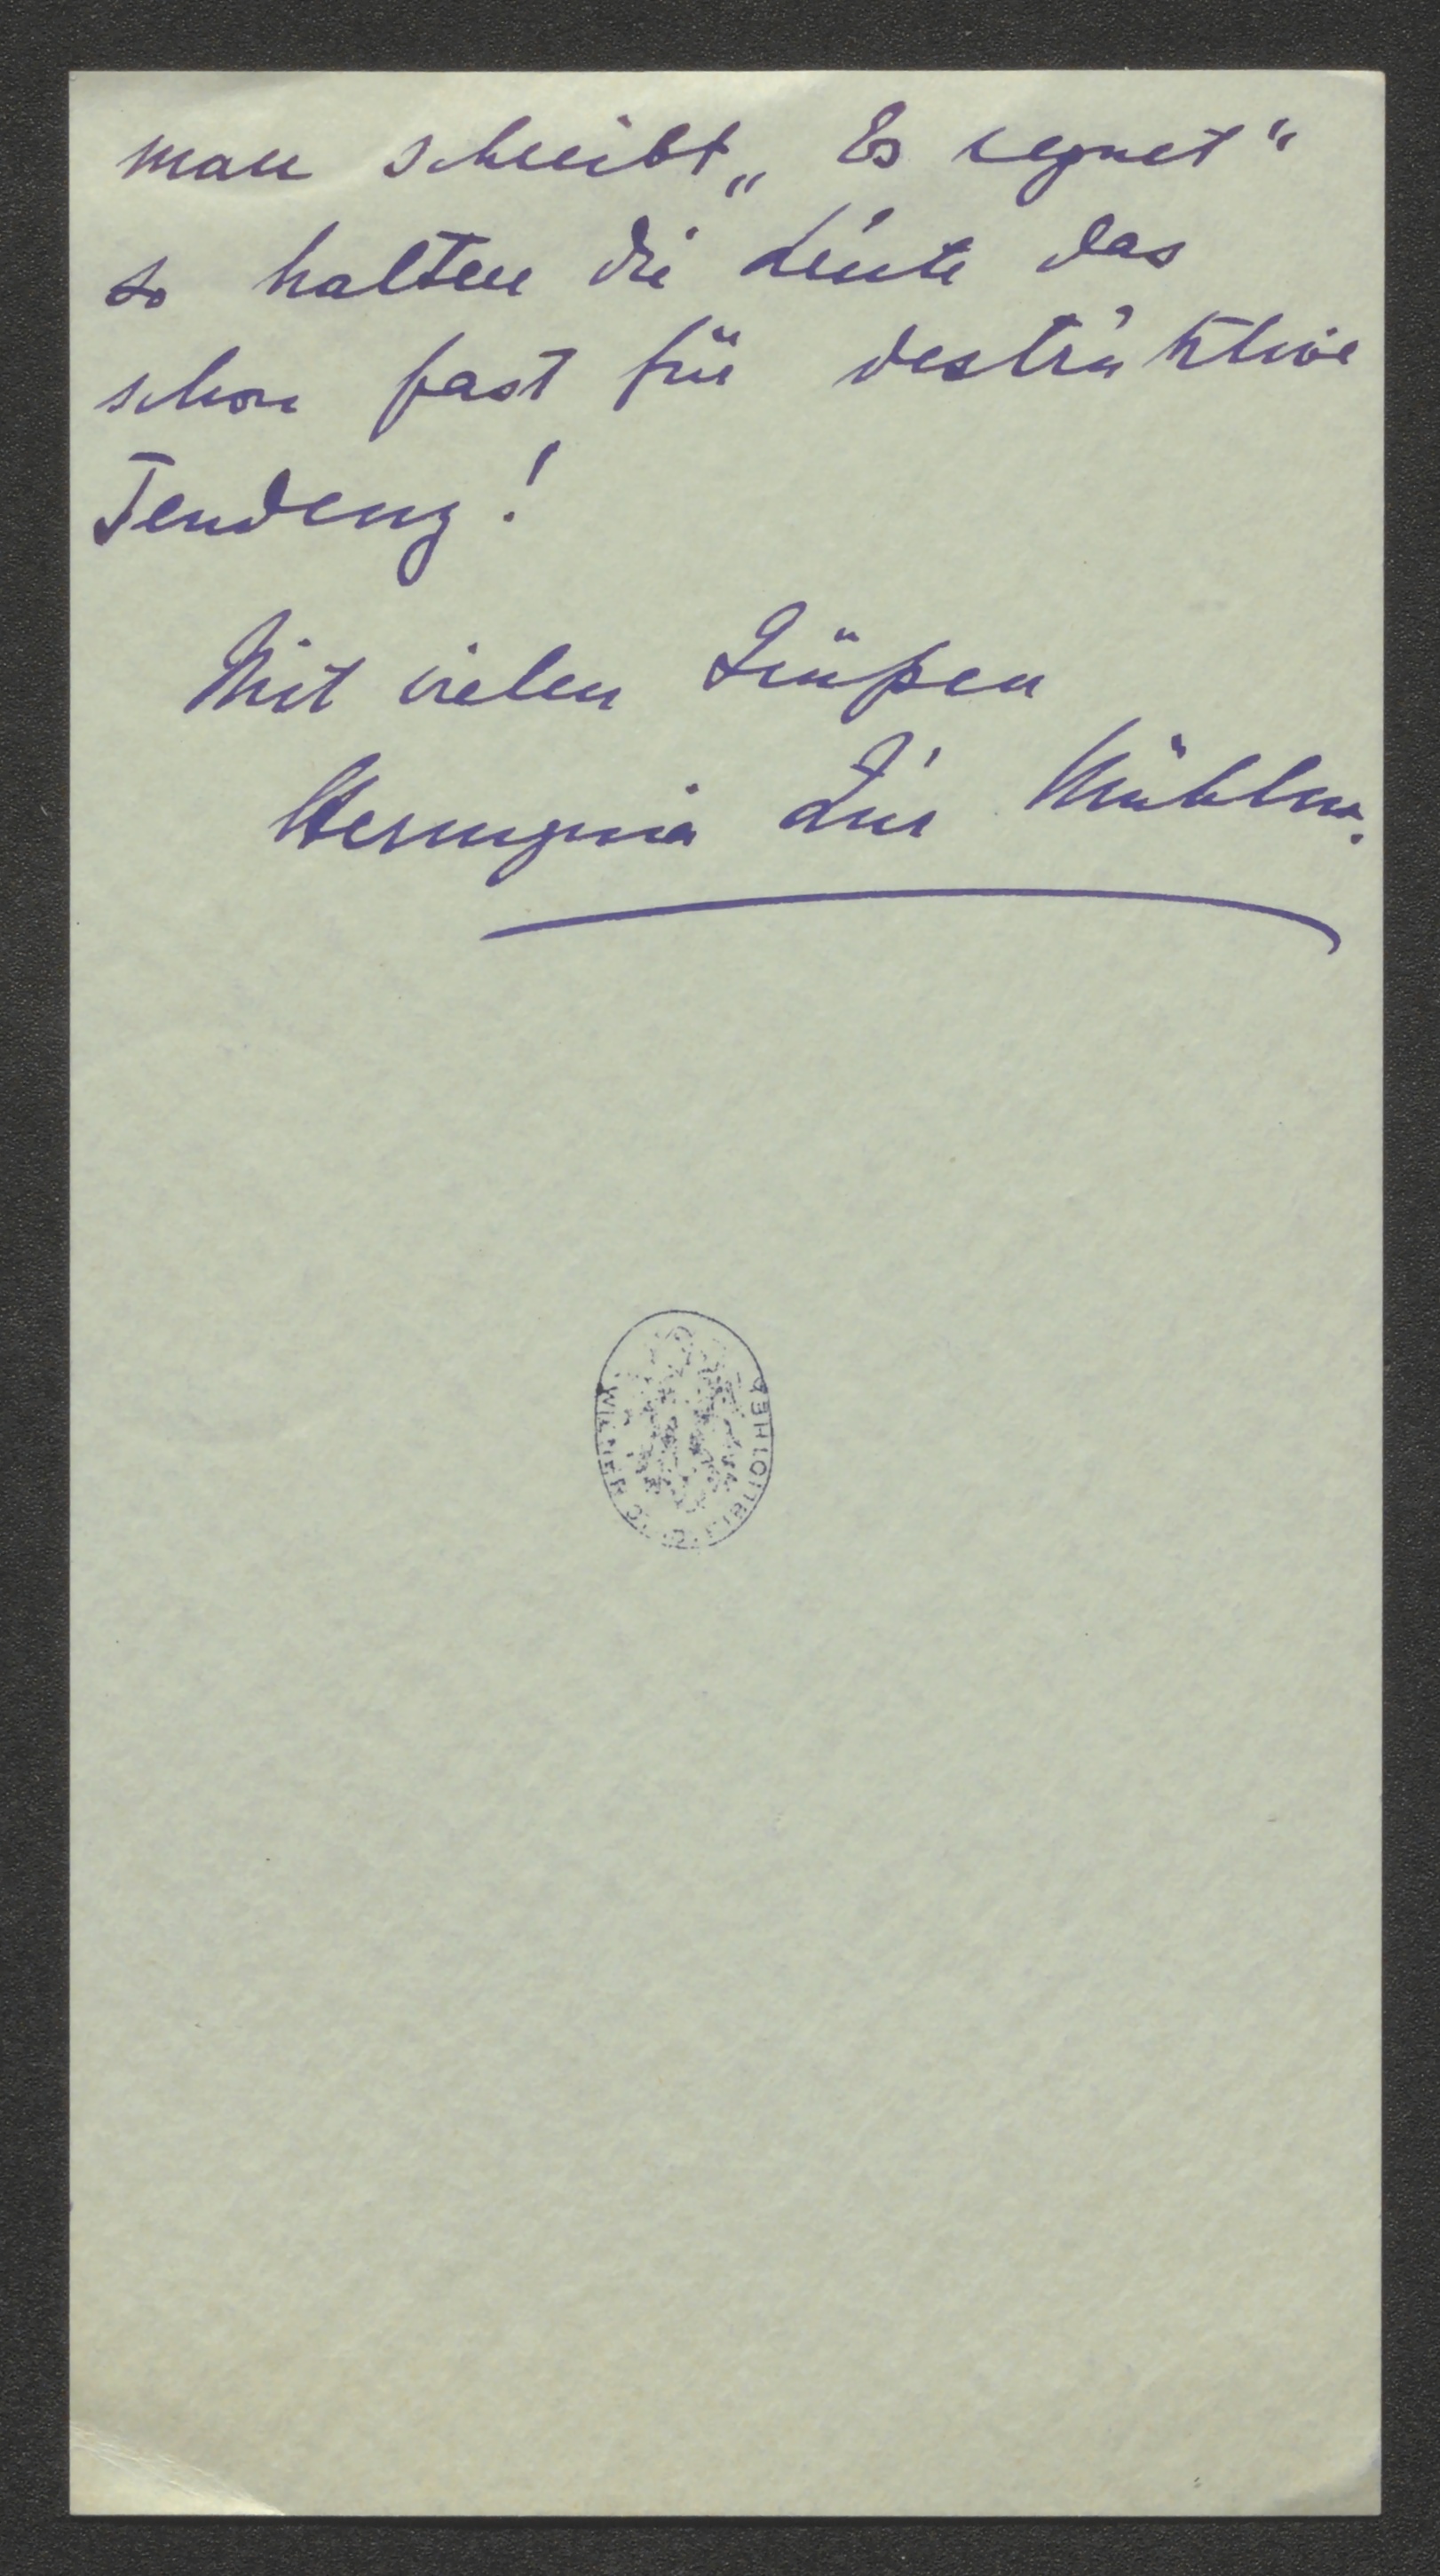 man schreibt „Es regnet“
so halten die Leute das
schon fast für destruktive
Tendenz!
Mit vielen Grüßen
Hermynia Zur Mühlen.
WIENER BIBLIOTHEK